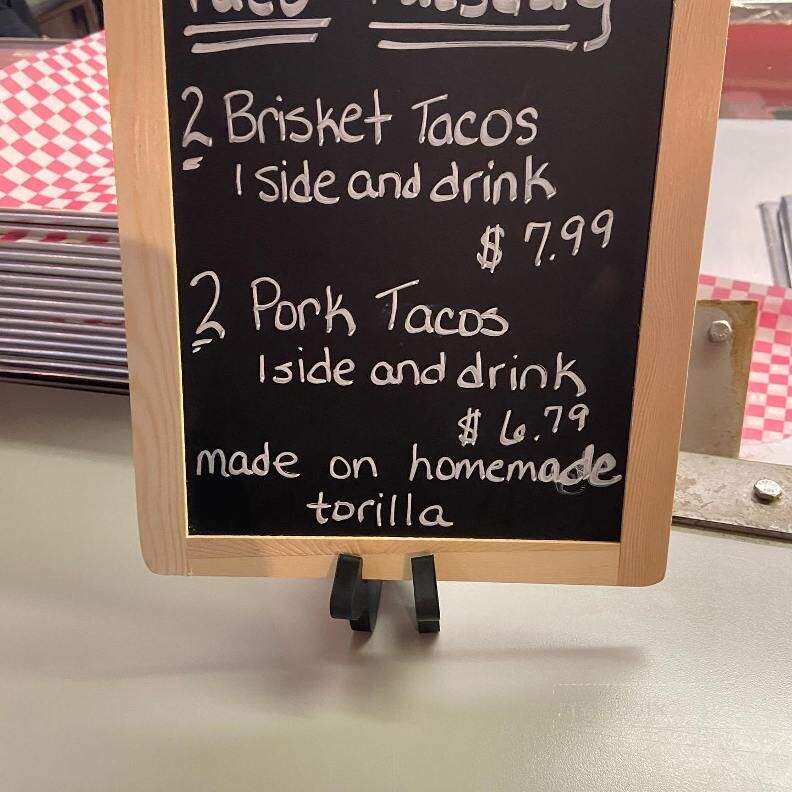 Taco Tuesday
2 Brisket Tacos
1 side and drink
$ 7.99
2 Pork Tacos
1 side and drink
$ 6.79
made on homemade
torilla